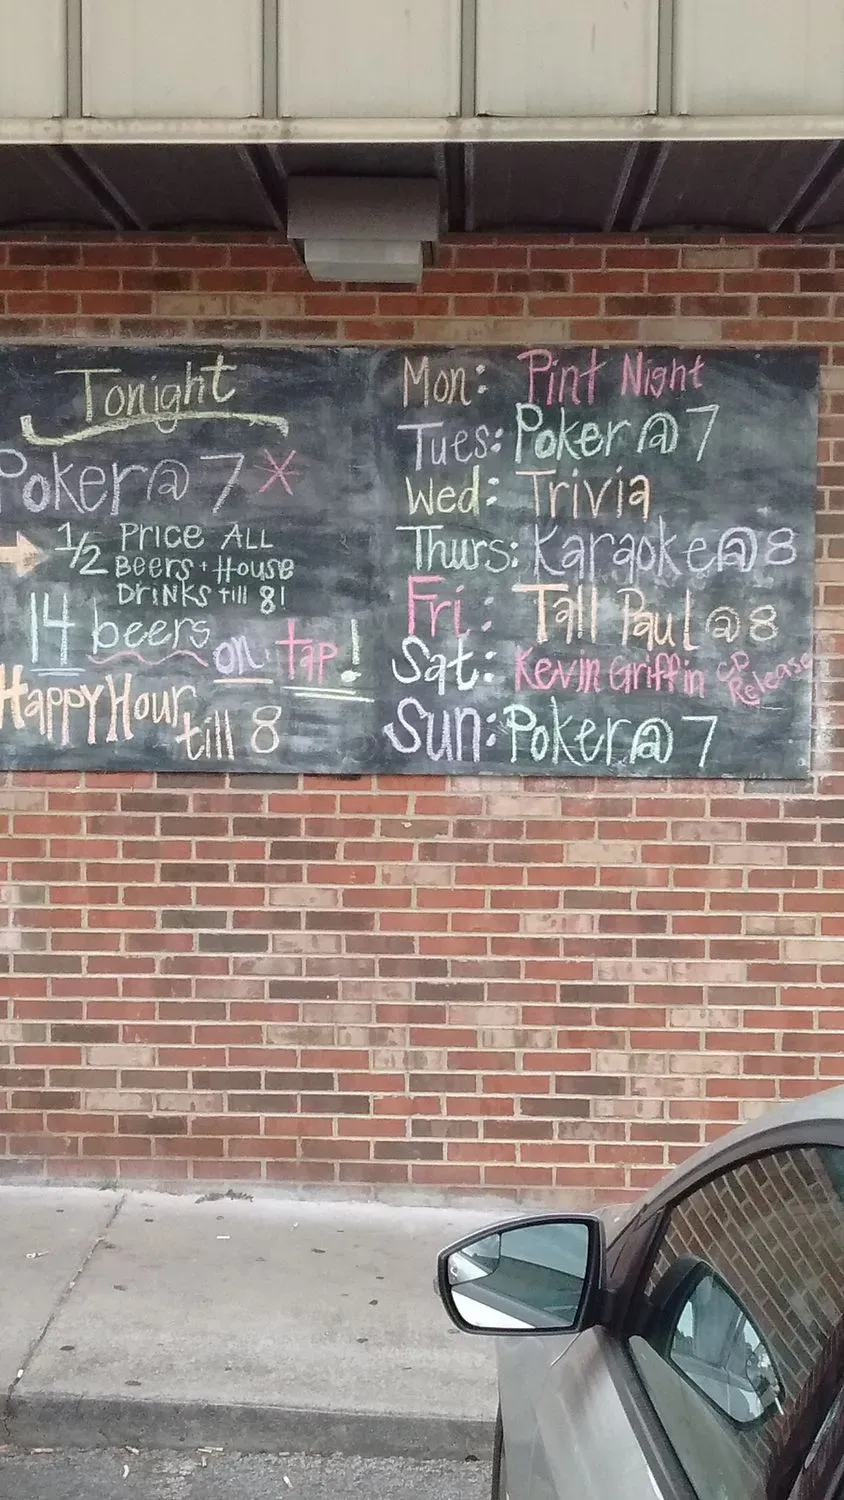 Tonight
Poker @ 7 *
1/2 PRICE ALL
BEERS + HOUSE
DRINKS till 8!
14 beers on tap!
Happy Hour
till 8
Mon: Pint Night
Tues: Poker @ 7
Wed: Trivia
Thurs: Karaoke @ 8
Fri: Tall Paul @ 8
Sat: Kevin Griffin CD Release
Sun: Poker @ 7